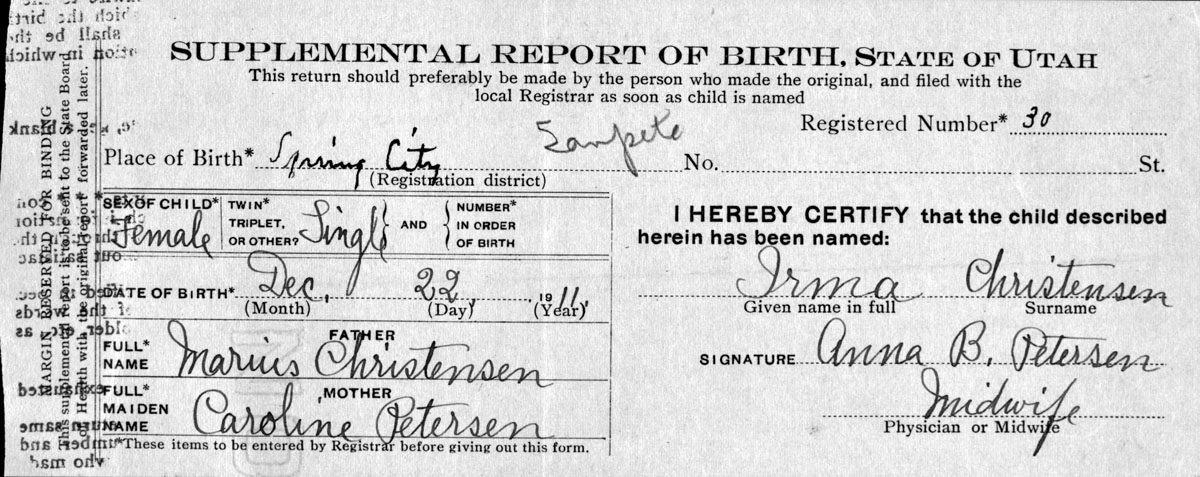 SUPPLEMENTAL REPORT OF BIRTH, STATE OF UTAH
This return should preferably be made by the person who made the original, and filed with the
local Registrar as soon as child is named
Registered Number* 30
Sanpete
Place of Birth* Spring City No. St.
(Registration district)
SEX OF CHILD* Female
TWIN* TRIPLET, OR OTHER? Single
AND
NUMBER* IN ORDER OF BIRTH
DATE OF BIRTH* Dec. 22, 1911,
(Month) (Day) (Year)
FATHER
FULL* NAME Marius Christensen
MOTHER
FULL* MAIDEN NAME Caroline Petersen
*These items to be entered by Registrar before giving out this form.
I HEREBY CERTIFY that the child described
herein has been named:
Irma Christensen
Given name in full Surname
SIGNATURE Anna B. Petersen
Midwife
Physician or Midwife
MARGIN RESERVED FOR BINDING
This supplemental report is to be sent to the State Board
of Health with the original report forwarded later.